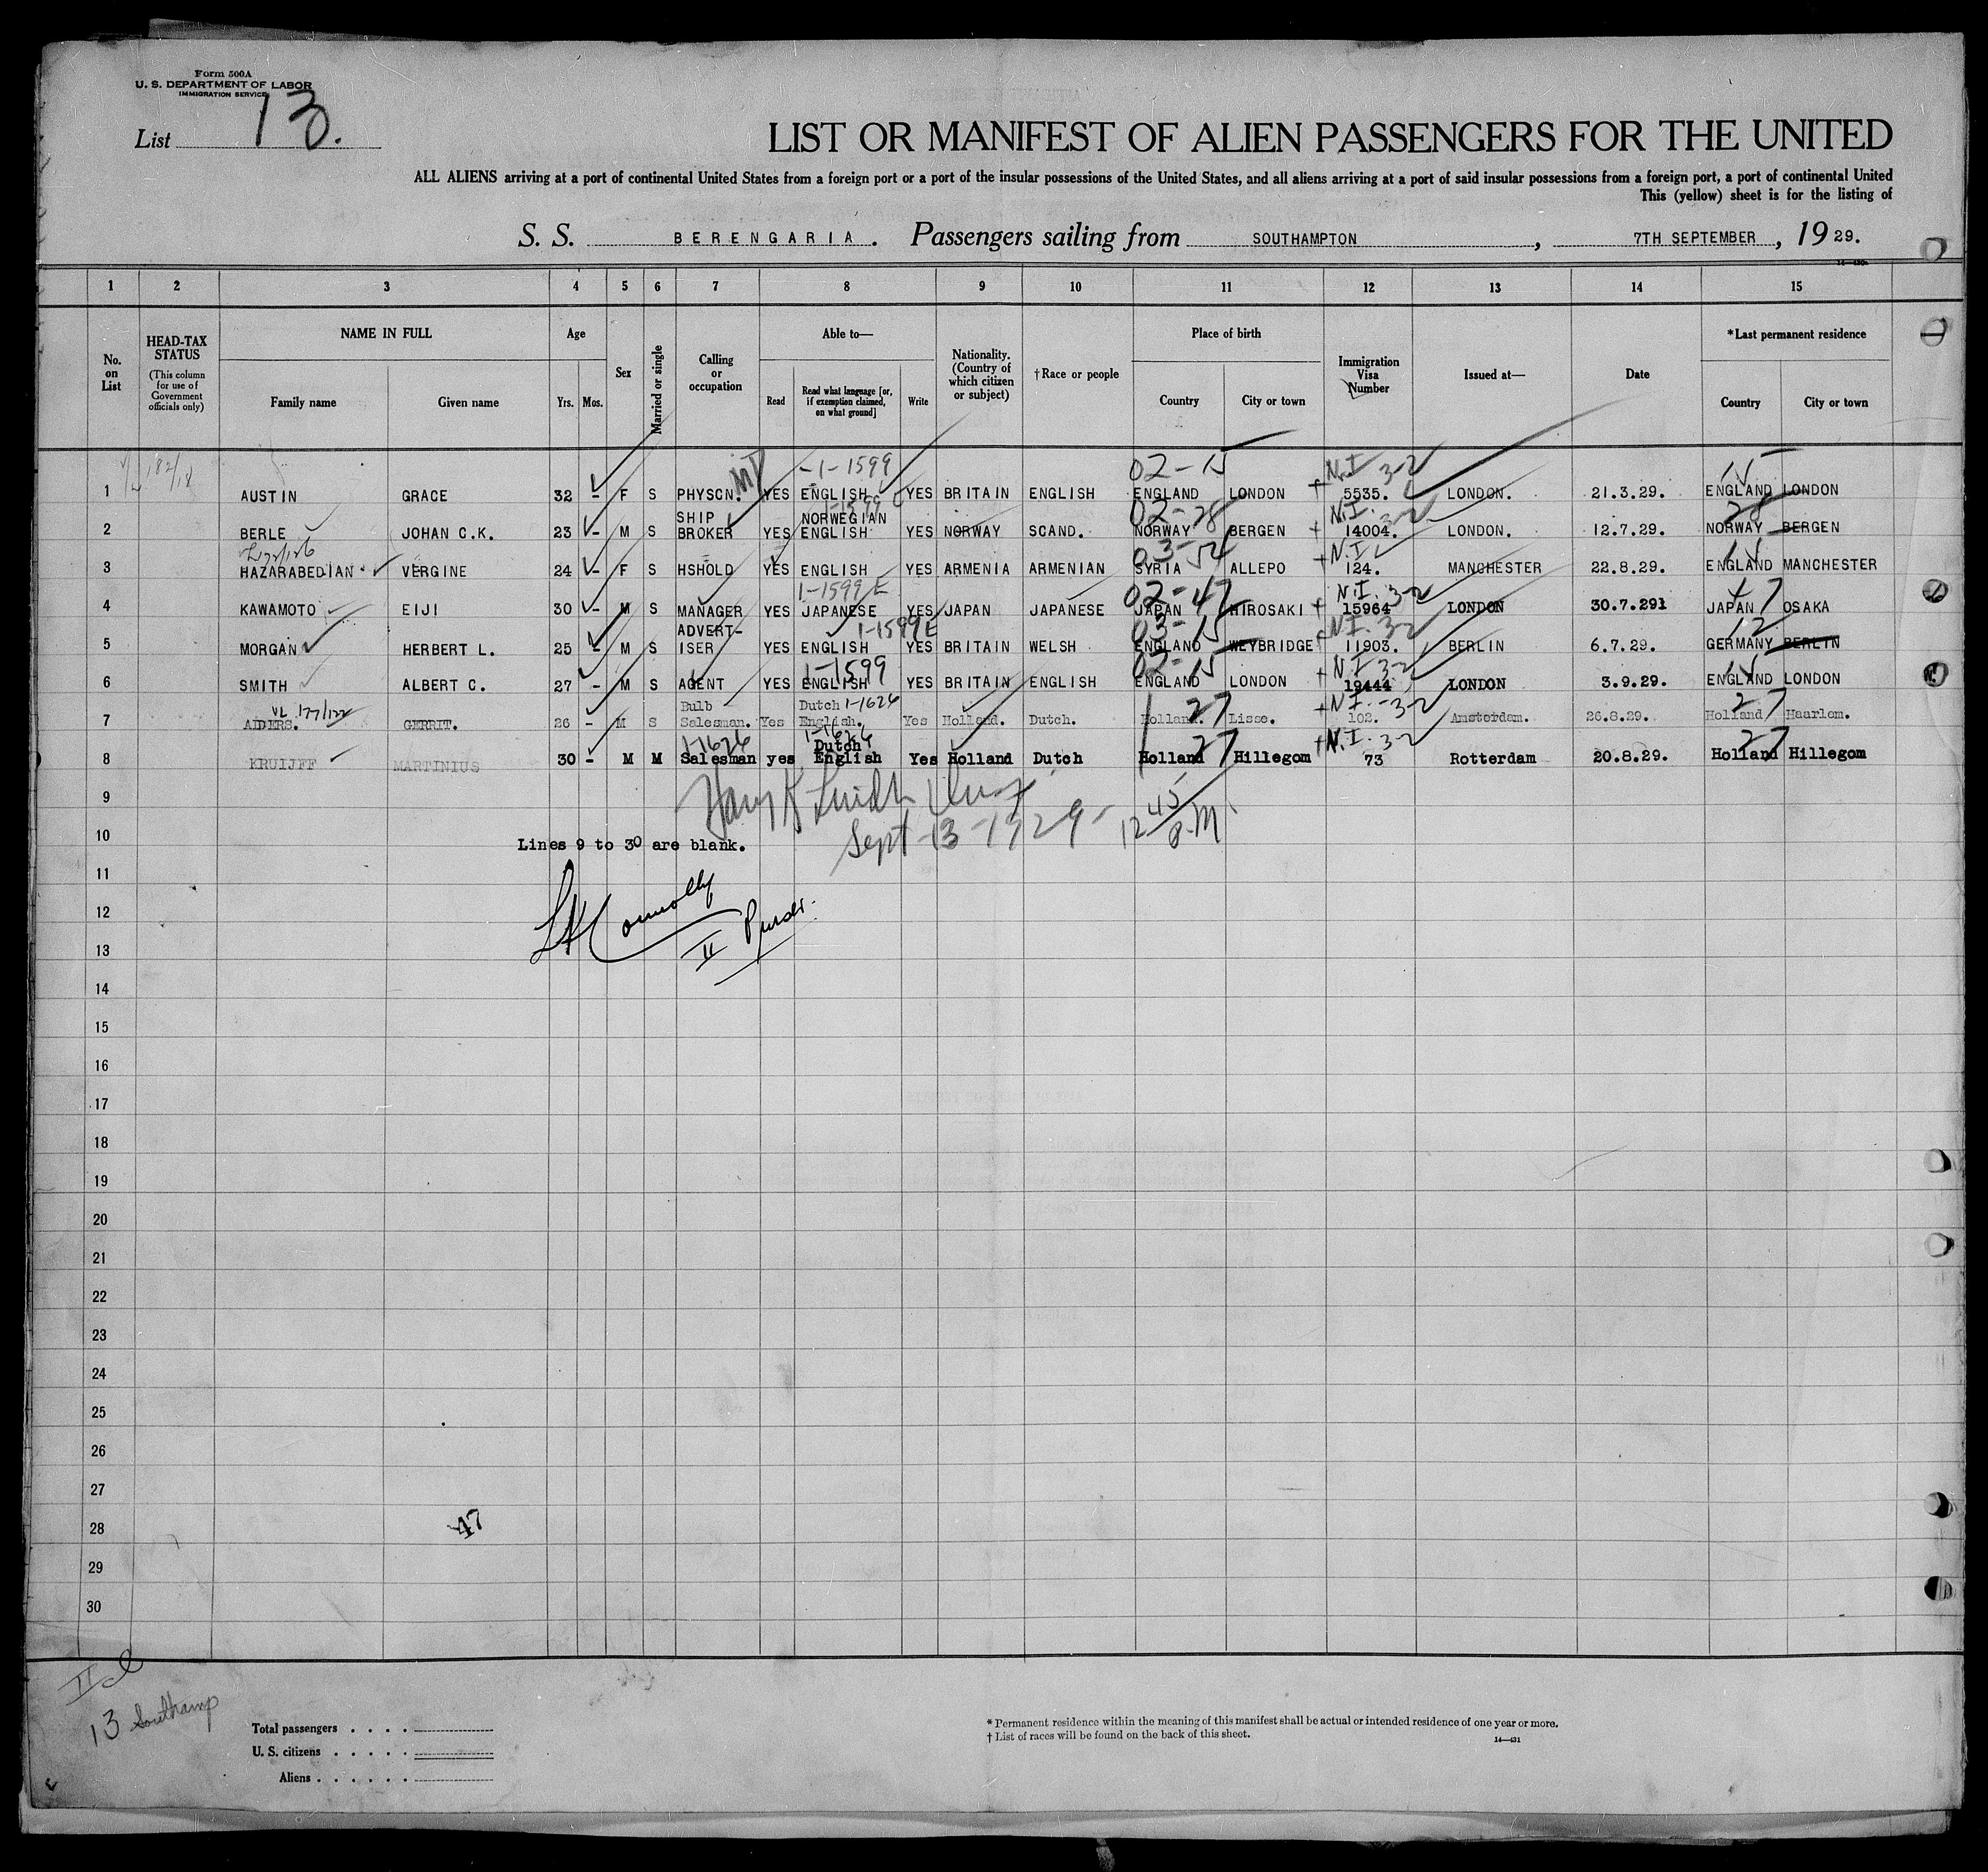 Form 500A
U. S. DEPARTMENT OF LABOR
IMMIGRATION SERVICE
List 13.
LIST OR MANIFEST OF ALIEN PASSENGERS FOR THE UNITED
ALL ALIENS arriving at a port of continental United States from a foreign port or a port of the insular possessions of the United States, and all aliens arriving at a port of said insular possessions from a foreign port, a port of continental United
This (yellow) sheet is for the listing of
S. S. BERENGARIA. Passengers sailing from SOUTHAMPTON, 7TH SEPTEMBER, 1929.
1 2 3 4 5 6 7 8 9 10 11 12 13 14 15
No. on List
HEAD-TAX STATUS
(This column for use of Government officials only)
NAME IN FULL
Family name Given name
Age
Yrs. Mos.
Sex
Married or single
Calling or occupation
Able to—
Read
Read what language [or, if exemption claimed, on what ground]
Write
Nationality. (Country of which citizen or subject)
†Race or people
Place of birth
Country City or town
Immigration Visa Number
Issued at—
Date
*Last permanent residence
Country City or town
182/18 MD -1-1599 02-15 N.I 3-2 15
1 AUSTIN GRACE 32 - F S PHYSCN. YES ENGLISH YES BRITAIN ENGLISH ENGLAND LONDON 5535. LONDON. 21.3.29. ENGLAND LONDON
SHIP NORWEGIAN 1-1599 02-28 N.I. 3-2 28
2 BERLE JOHAN C.K. 23 - M S BROKER YES ENGLISH YES NORWAY SCAND. NORWAY BERGEN 14004. LONDON. 12.7.29. NORWAY BERGEN
03-54 N.I.
3 HAZARABEDIAN VERGINE 24 - F S HSHOLD YES ENGLISH YES ARMENIA ARMENIAN SYRIA ALLEPO 124. MANCHESTER 22.8.29. ENGLAND MANCHESTER
1-1599 E 02-47 N.I. 3-2 47
4 KAWAMOTO EIJI 30 - M S MANAGER YES JAPANESE YES JAPAN JAPANESE JAPAN HIROSAKI 15964 LONDON 30.7.291 JAPAN OSAKA
ADVERT- 1-1599 E 03-15 N.I. 3-2 12
5 MORGAN HERBERT L. 25 - M S ISER YES ENGLISH YES BRITAIN WELSH ENGLAND WEYBRIDGE 11903. BERLIN 6.7.29. GERMANY BERLIN
1-1599 02-15 N.I 3-2
6 SMITH ALBERT C. 27 - M S AGENT YES ENGLISH YES BRITAIN ENGLISH ENGLAND LONDON 19444 LONDON 3.9.29. ENGLAND LONDON
VL 177/122 Bulb Dutch 1-1626 27 N.I. 3-2 27
7 AIDERS. GERRIT. 26 - M S Salesman. Yes English. Yes Holland. Dutch. Holland. Lisse. 102. Amsterdam. 26.8.29. Holland Haarlem.
1-1626 1-1626 Dutch 27 N.I. 3-2 27
8 KRUIJFF MARTINIUS 30 - M M Salesman yes English Yes Holland Dutch Holland Hillegom 73 Rotterdam 20.8.29. Holland Hillegom
9
Sept-13-1929- 12 45 P.M.
10
Lines 9 to 30 are blank.
11
12
L Connolly
II Purser.
13
14
15
16
17
18
19
20
21
22
23
24
25
26
27
28
47
29
30
13 Southamp
Total passengers
U. S. citizens
Aliens
* Permanent residence within the meaning of this manifest shall be actual or intended residence of one year or more.
† List of races will be found on the back of this sheet.
14—431